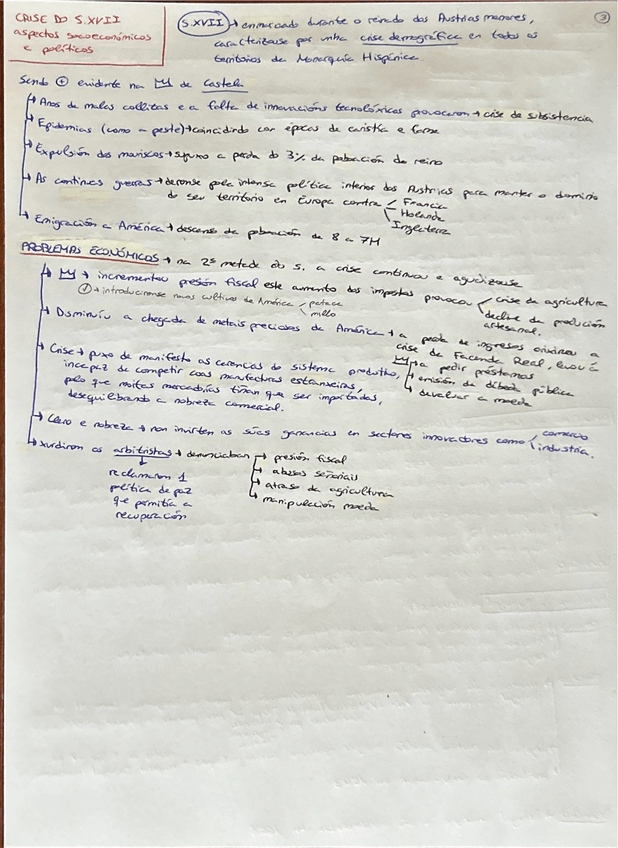 ③
CRISE DO S.XVII
aspectos socioeconómicos
e políticos
S.XVII → enmarcado durante o reinado dos Austrias menores,
caracterízase por unha crise demográfica en todos os
territorios da Monarquía Hispánica.
Sendo ⊕ evidente na de Castela
↳ Anos de malas collitas e a falta de innovacións tecnolóxicas provocaron → crise de subsistencia
↳ Epidemias (como a peste) → coincidindo con épocas de carestía e fame
↳ Expulsión dos mouriscos → supuxo a perda do 3% da poboación do reino
↳ As continuas guerras → déronse pola intensa política interior dos Austrias para manter o dominio
do seu territorio en Europa contra Francia
Holanda
Inglaterra
↳ Emigración a América → descenso da poboación de 8 a 7M
PROBLEMAS ECONÓMICOS → na 2ª metade do s. a crise continuou e agudizouse
↳ → incrementou presión fiscal este aumento dos impostos provocou crise da agricultura
declive da produción
artesanal.
→ introducíronse novos cultivos de América pataca
millo
↳ Disminuíu a chegada de metais preciosos de América → a perda de ingresos orixinou a
crise da Facenda Real, levou á
a pedir préstamos
↳ emisión da débeda pública
↳ devaluar a moeda
↳ Crise → puxo de manifesto as carencias do sistema produtivo,
incapaz de competir coas manufacturas estranxeiras,
polo que moitas mercadorías tiñan que ser importadas,
desequilibrando a nobreza comercial.
↳ Clero e nobreza → non inviten as súas ganancias en sectores innovadores como comercio
industria.
↳ xurdiron os arbitristas → denunciaban → presión fiscal
↳ abusos señoriais
↳ atraso da agricultura
↳ manipulación moeda
reclamaron 1
política de paz
que permitía a
recuperación